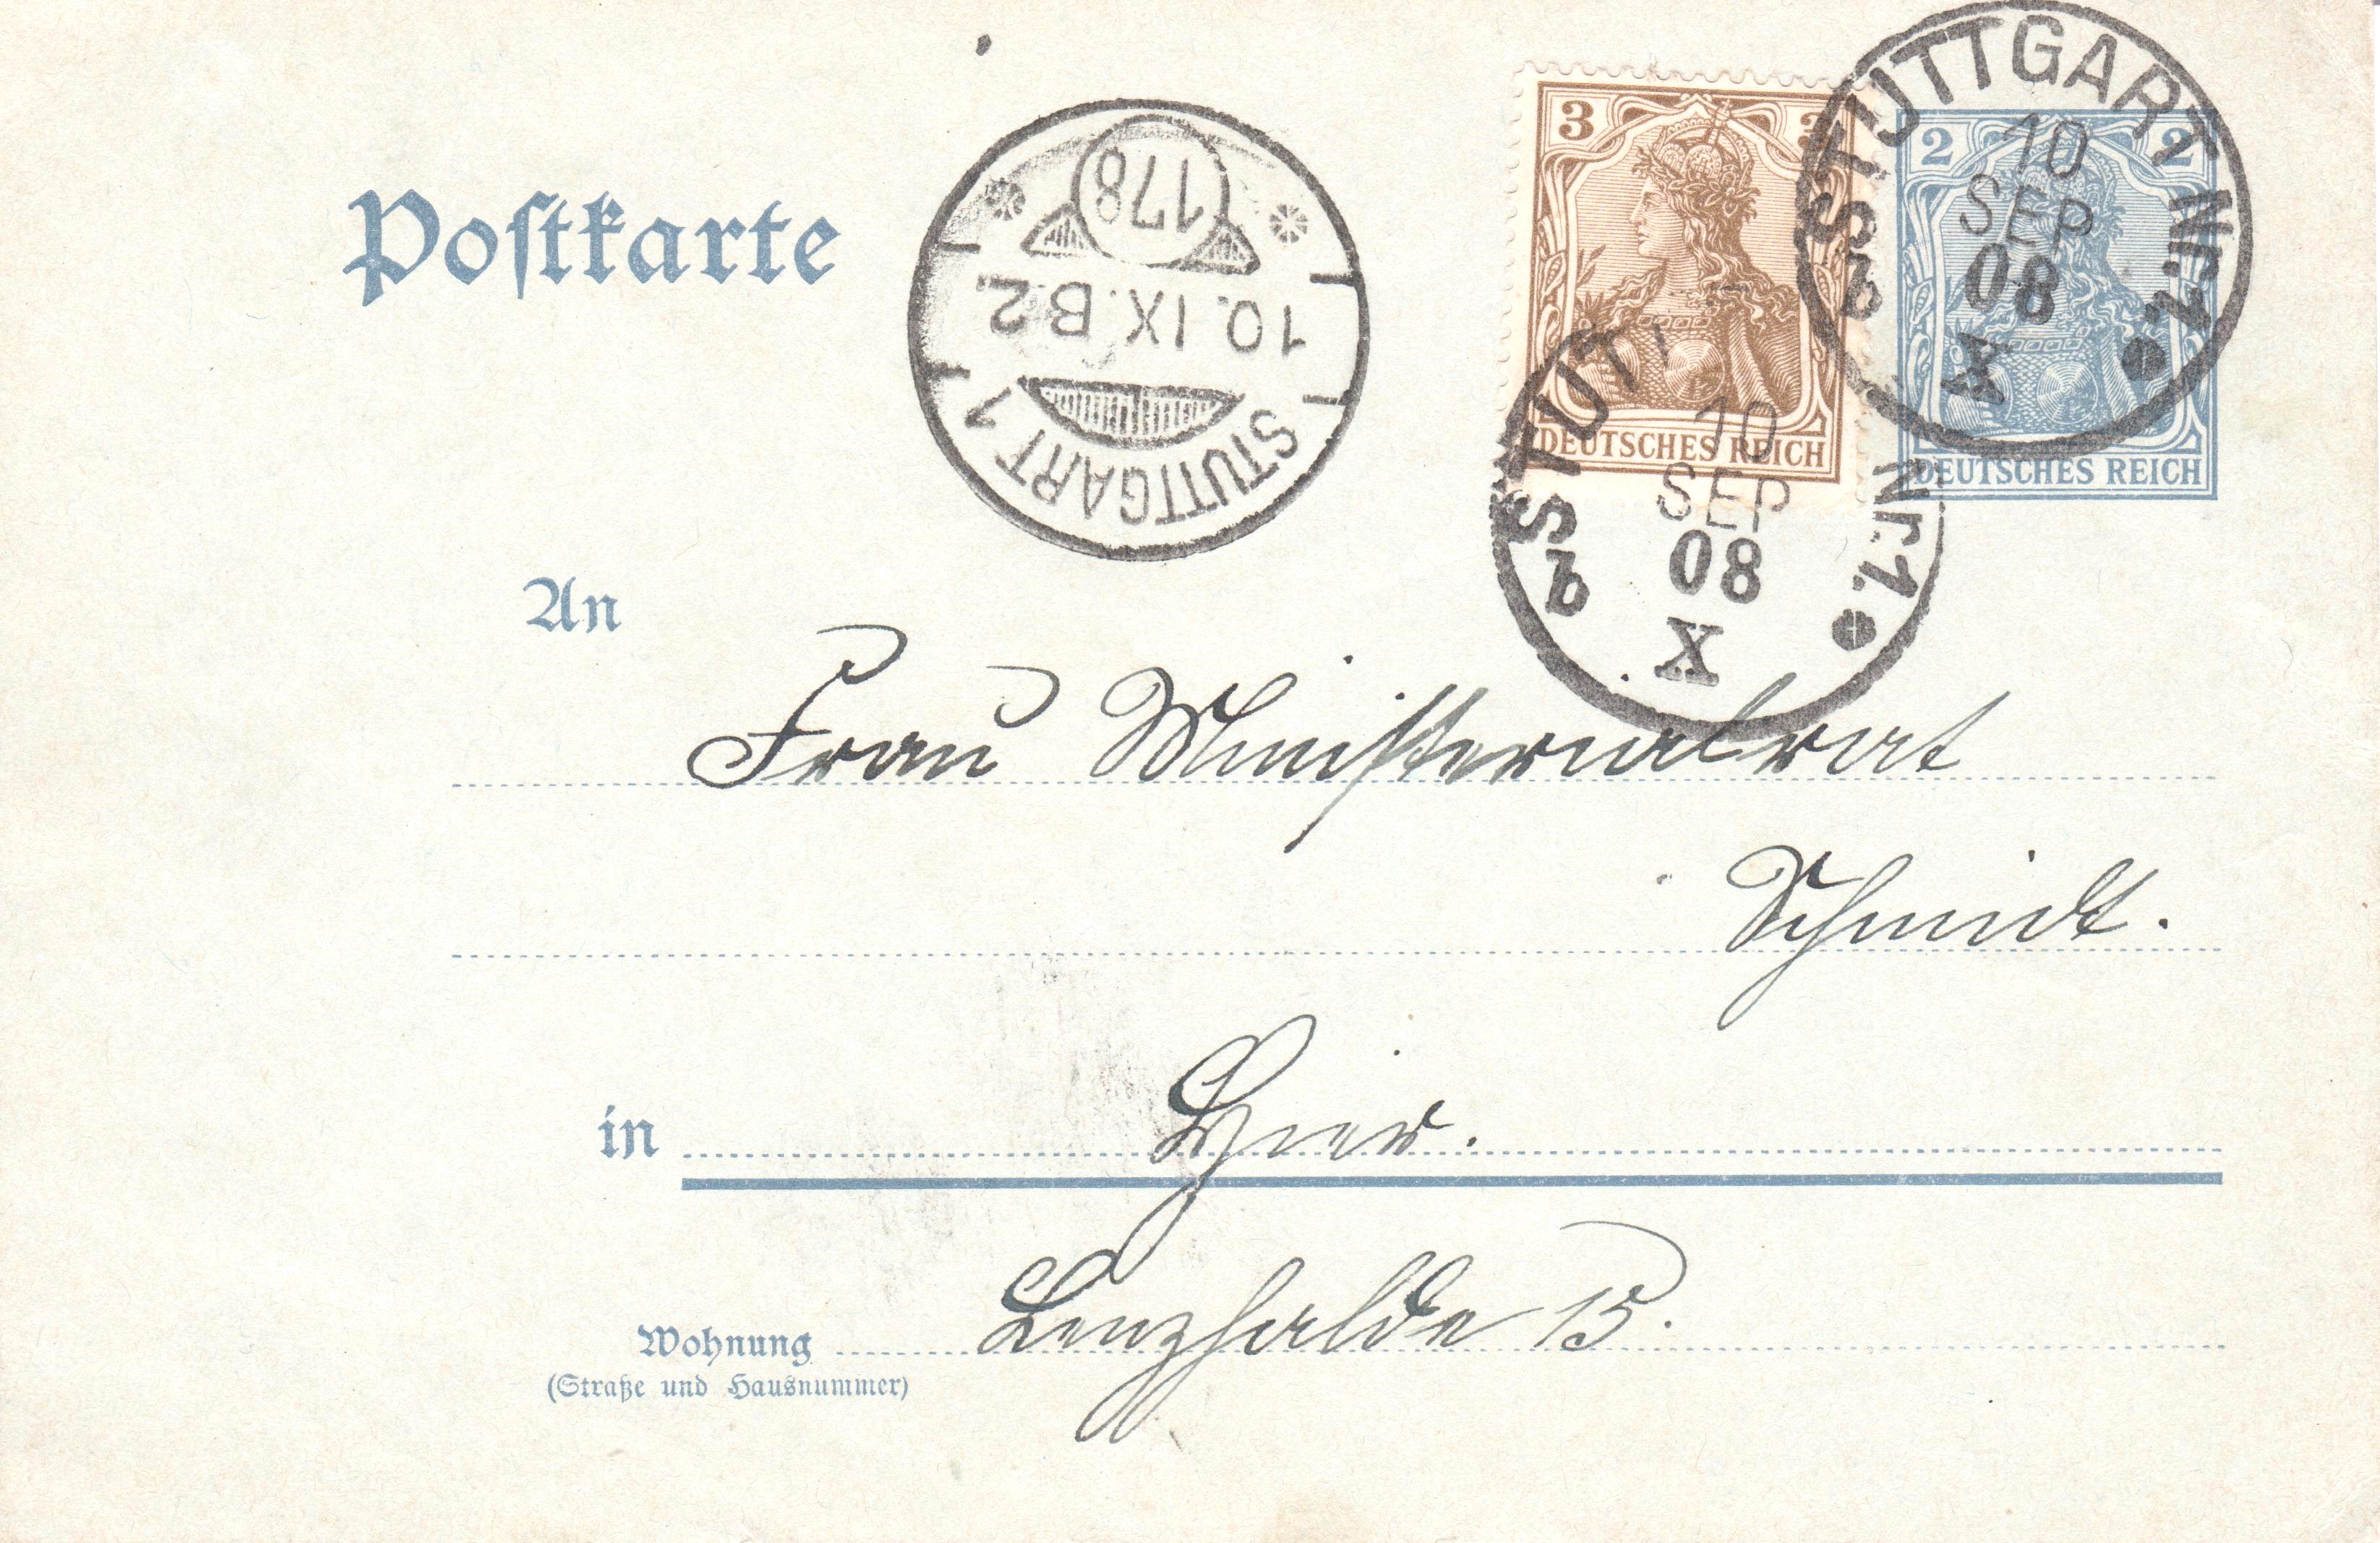 Postkarte
178
10. IX. B2.
STUTTGART 1
3 3
DEUTSCHES REICH
2 2
DEUTSCHES REICH
STUTTGART Nr. 1.
10
SEP
08
X
b
STUT Nr. 1.
10
SEP
08
X
b
An
Frau Ministerialrat
Schmidt.
in Hier.
Wohnung Lenzhalde 15.
(Straße und Hausnummer)